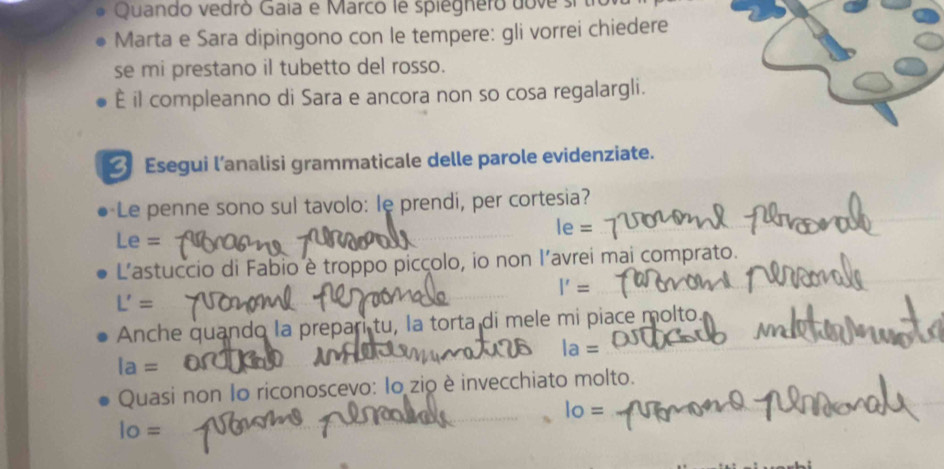 • Quando vedrò Gaia e Marco le spiegherò dove si
• Marta e Sara dipingono con le tempere: gli vorrei chiedere
se mi prestano il tubetto del rosso.
• È il compleanno di Sara e ancora non so cosa regalargli.
3 Esegui l'analisi grammaticale delle parole evidenziate.
• Le penne sono sul tavolo: le prendi, per cortesia?
Le = pronome personale le = pronome personale
• L'astuccio di Fabio è troppo piccolo, io non l'avrei mai comprato.
L' = pronome personale l' = pronome personale
• Anche quando la prepari tu, la torta di mele mi piace molto.
la = articolo la = articolo
• Quasi non lo riconoscevo: lo zio è invecchiato molto.
lo = pronome personale lo = pronome personale